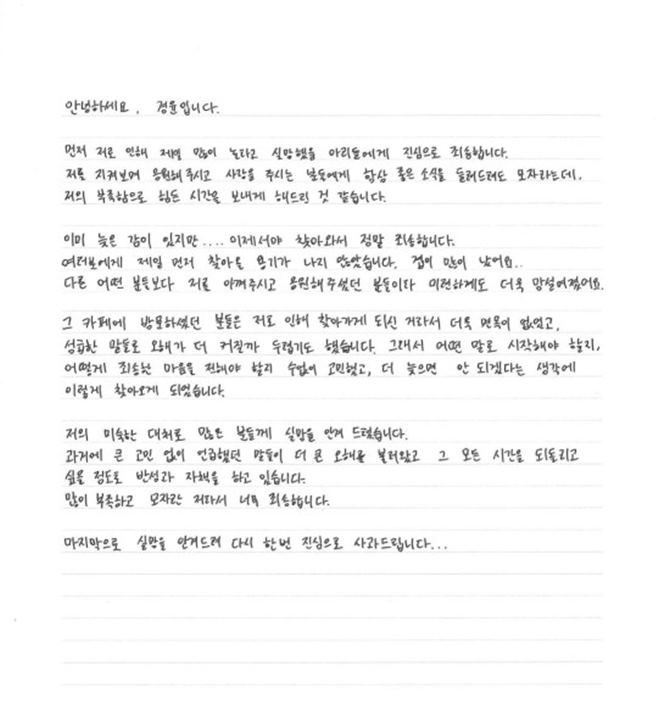 안녕하세요, 경윤입니다.
먼저 저로 인해 제일 많이 놀라고 실망했을 아리들에게 진심으로 죄송합니다.
저를 지켜보며 응원해주시고 사랑을 주시는 날들에게 항상 좋은 소식을 들려드려도 모자라는데,
저의 부족함으로 힘든 시간을 보내게 해드린 것 같습니다.
이미 늦은 감이 있지만.... 이제서야 찾아와서 정말 죄송합니다.
여러분에게 제일 먼저 찾아올 용기가 나지 않았습니다. 겁이 많이 났어요..
다른 어떤 분들보다 저를 아껴주시고 응원해주셨던 분들이라 미련하게도 더욱 망설여졌어요.
그 카페에 방문하셨던 분들은 저로 인해 찾아가게 되신 거라서 더욱 면목이 없었고,
섣급한 말들로 오해가 더 커질까 두렵기도 했습니다. 그래서 어떤 말로 시작해야 할지,
어떻게 죄송한 마음을 전해야 할지 수없이 고민했고, 더 늦으면 안 되겠다는 생각에
이렇게 찾아오게 되었습니다.
저의 미숙한 대처로 많은 분들께 실망을 안겨 드렸습니다.
과거에 큰 고민 없이 언급했던 말들이 더 큰 오해를 불러왔고 그 모든 시간을 되돌리고
싶을 정도로 반성과 자책을 하고 있습니다.
많이 부족하고 모자란 저라서 너무 죄송합니다.
마지막으로 실망을 안겨드려 다시 한번 진심으로 사과드립니다...